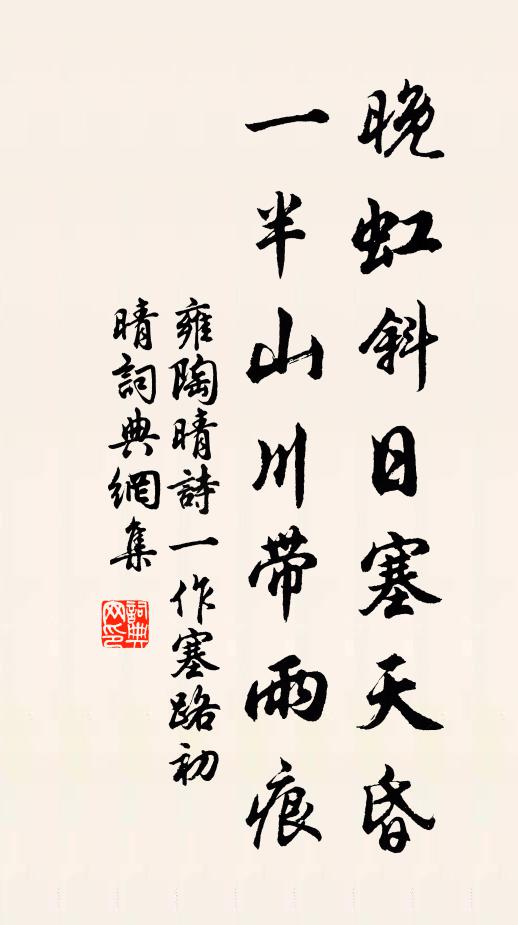 晚虹斜日塞天昏
一半山川帶雨痕
雍陶晴詩一作塞路初
晴詞典網集
詞典网印